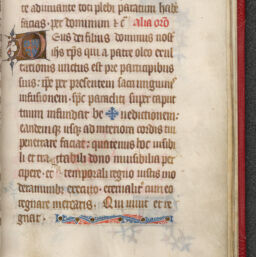 te adiuuante tibi plebi paratum habe
facias. per dominum ⁊ c̄. alia oro
Deus dei filius dominus nost̄
ihs xp̄s qui a patre oleo exul
tationis unctus est pre participibus
suis: ip̄e per presentem sacri unguini
infusionem. sp̄c paracliti super caput
tuum infundat be✠nedictionem:
eandemqꝫ usqꝫ ad interiora cordis tui
penetrare faciat: quatenus hoc uisibi
li et tractabili dono inuisibilia per
cipere. et temporali regno iustis mo
deraminibꝫ executo. eternalit̄ cum eo
regnare merearis. Qui uiuit et re
gnat.